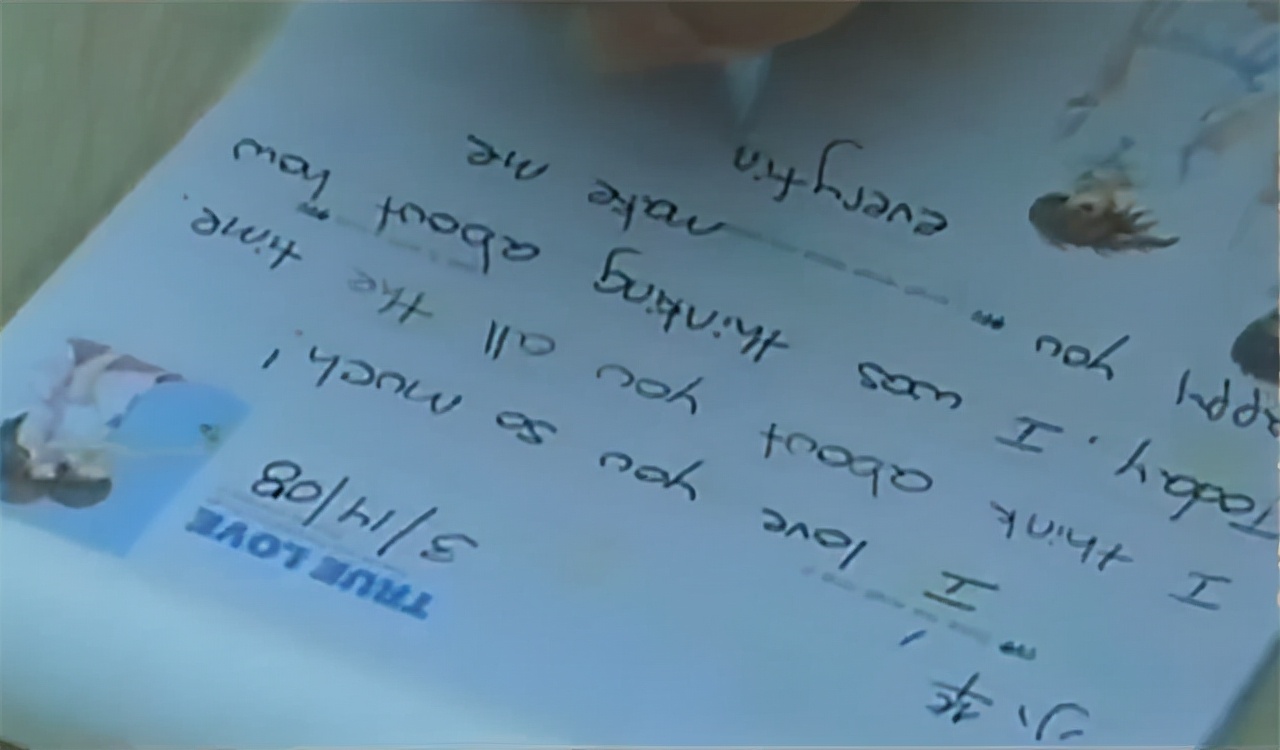 TRUE LOVE
3/14/08
I love you so much!
I think about you all the time.
Today, I was thinking about how
appy you make me
everytin